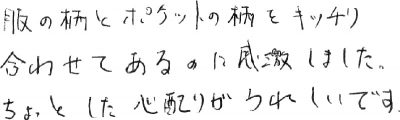 服の柄とポケットの柄をキッチリ
合わせてあるのに感激しました。
ちょっとした心配りがうれしいです.